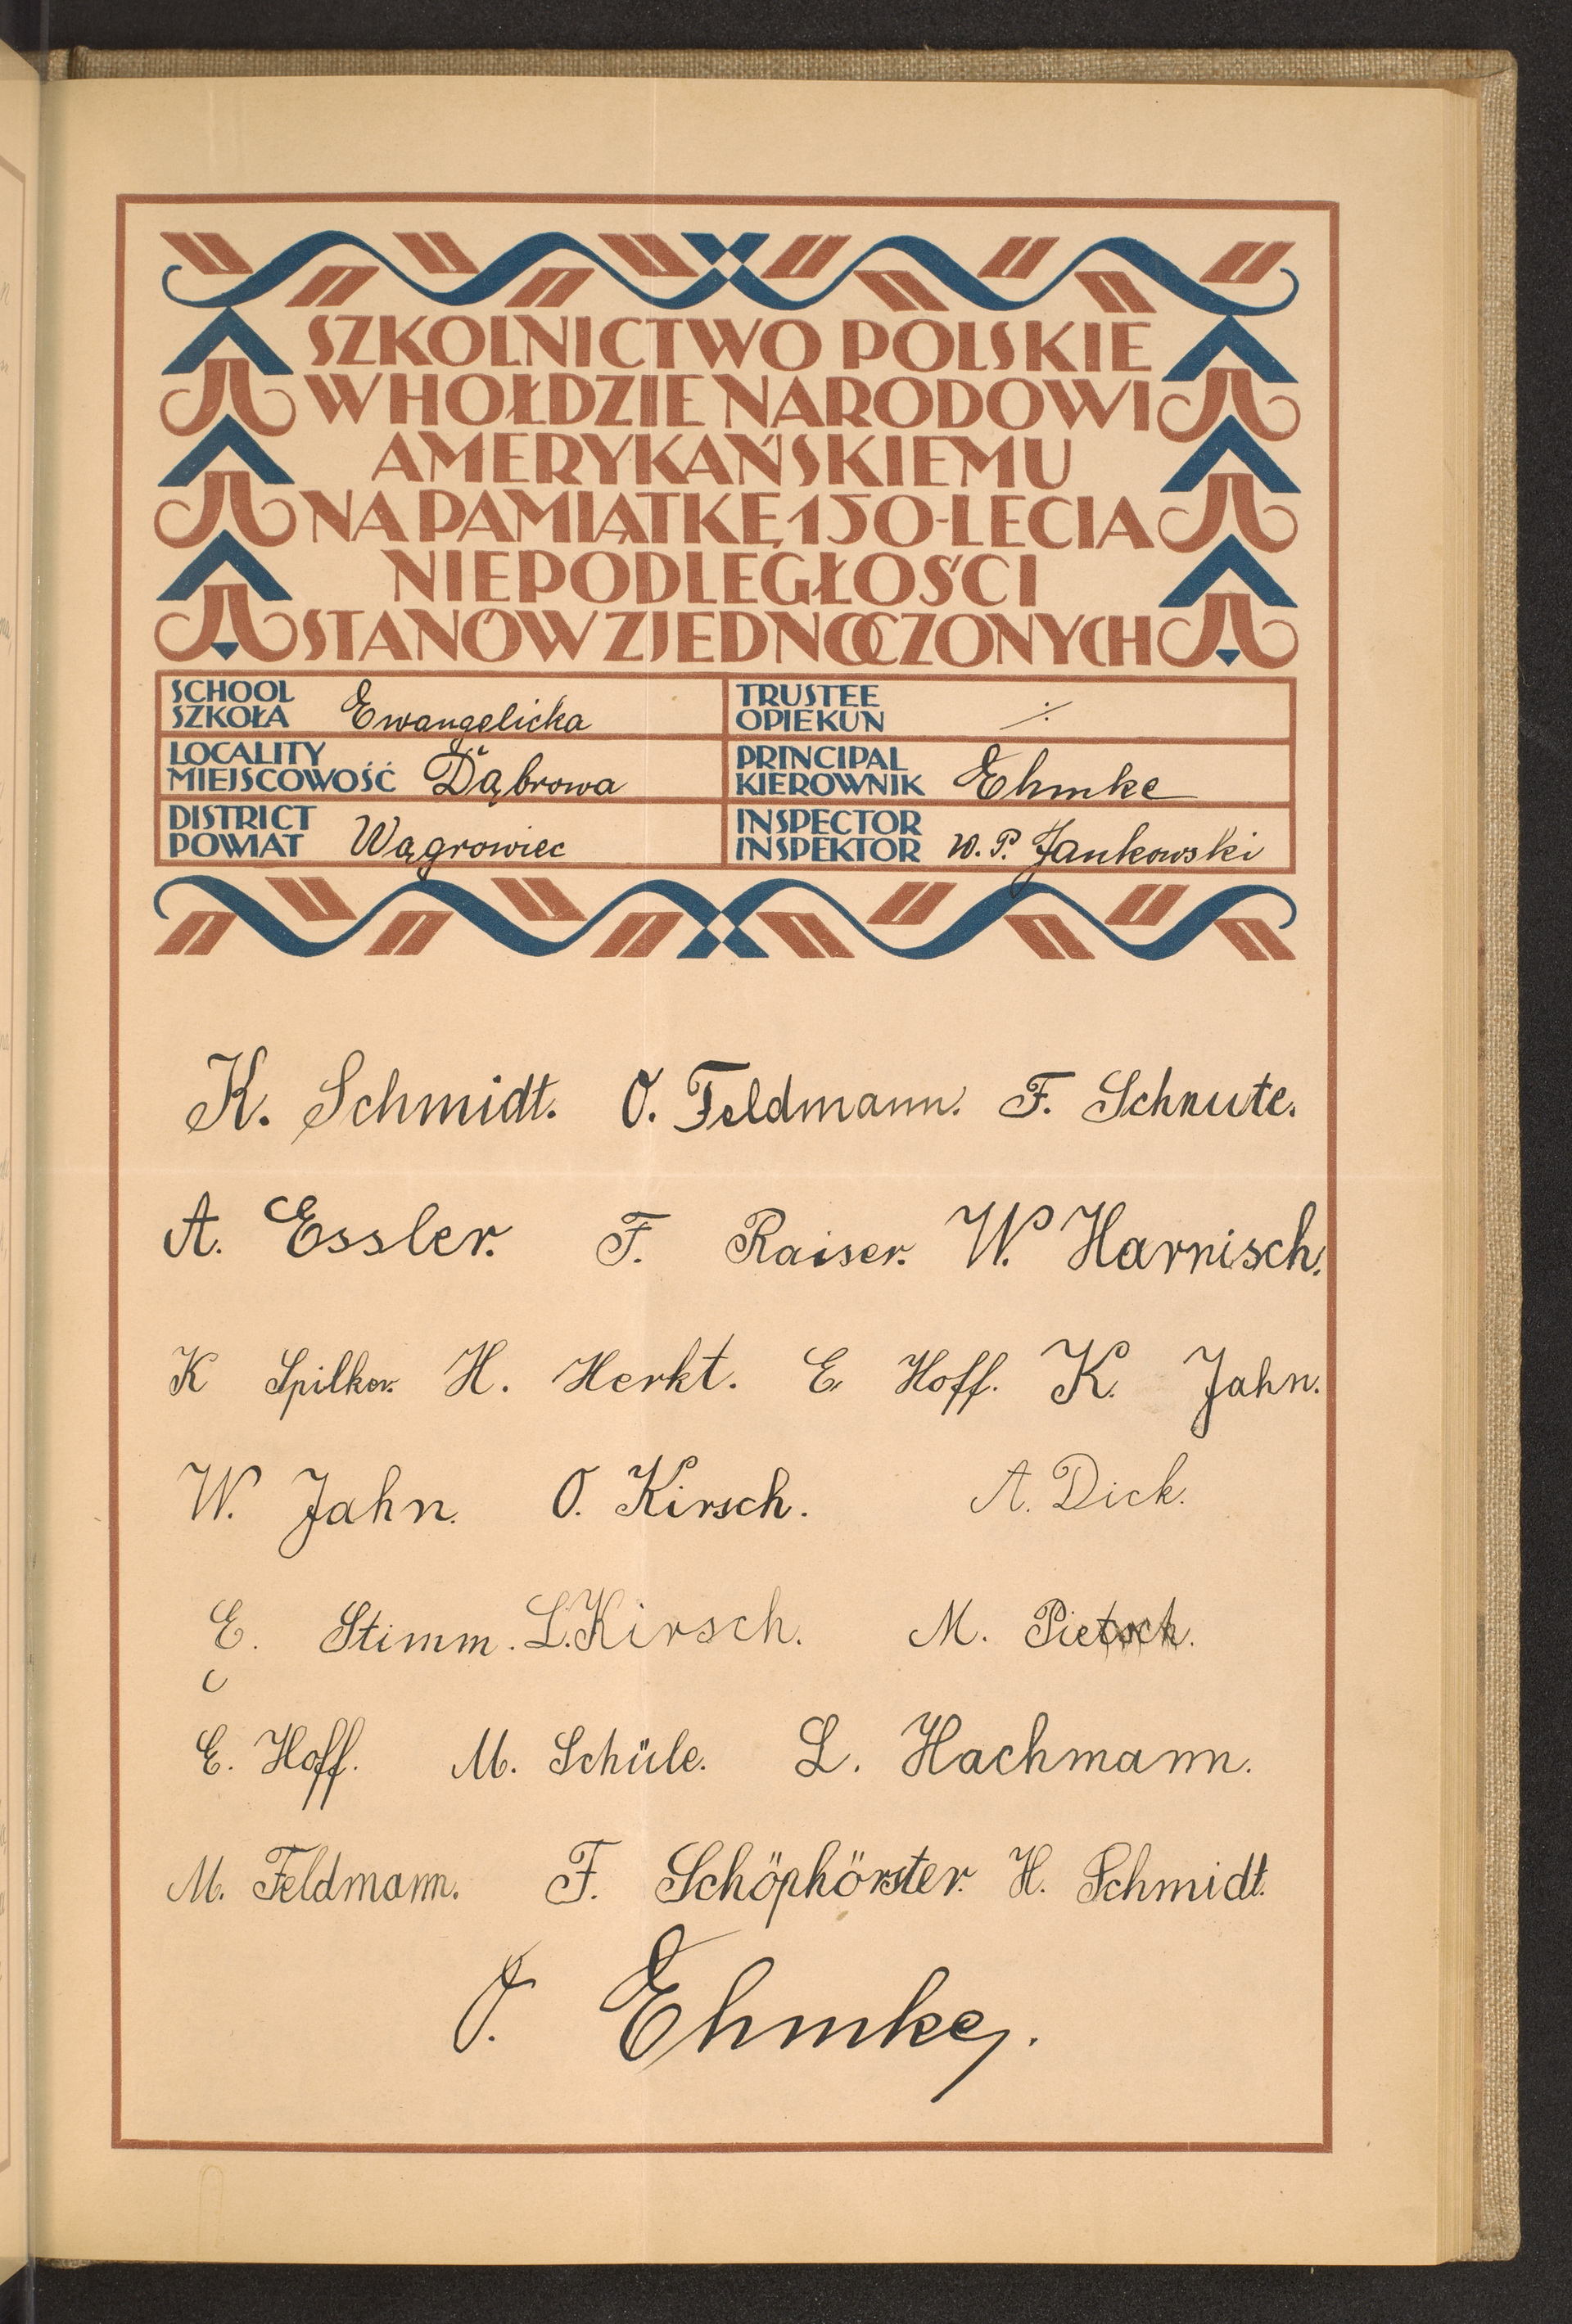 SZKOLNICTWO POLSKIE
W HOŁDZIE NARODOWI
AMERYKAŃSKIEMU
NA PAMIĄTKĘ 150-LECIA
NIEPODLEGŁOŚCI
STANÓW ZJEDNOCZONYCH
SCHOOL
SZKOŁA Ewangelicka
TRUSTEE
OPIEKUN ·/·
LOCALITY
MIEJSCOWOŚĆ Dąbrowa
PRINCIPAL
KIEROWNIK Ehmke
DISTRICT
POWIAT Wągrowiec
INSPECTOR
INSPEKTOR W. P. Jankowski
K. Schmidt. O. Feldmann. F. Schnute.
A. Essler. F. Raiser. W. Harnisch.
K Spilker. H. Herkt. E. Hoff. K. Jahn.
W. Jahn. O. Kirsch. A. Dick.
E. Stimm. L. Kirsch. M. Pietsch.
E. Hoff. M. Schüle. L. Hachmann.
M. Feldmann. F. Schöphörster. H. Schmidt.
J. Ehmke.